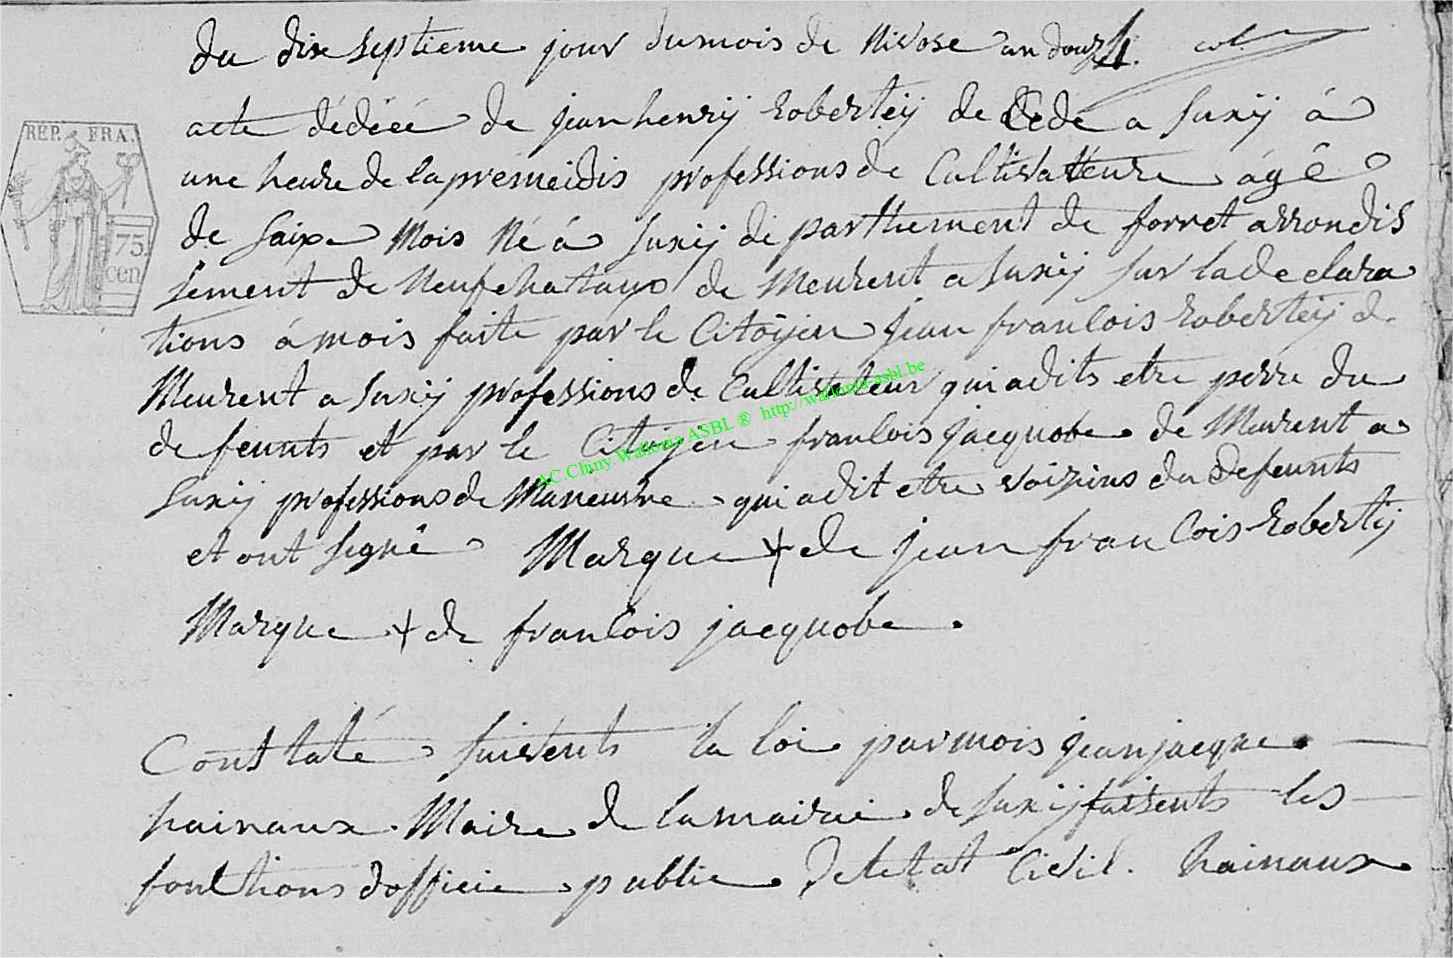 du dix septieme jour dumois de Nivose an douze
acte dédécé de jean henrij Robertéij de Cede a Suxij à
une heure de lapremeidis professions de Cultivatteure agé
REP. FRA.
75
cen
de Saixe Mois Né à Suxij dé parthement de forret arrondis
sement de Neufchataux de Meurent a Suxij sur lade clara
tions à mois faite par le Citoÿen jean franCois Robertéij de
Meurent a Suxij professions de Cultivateur qui adits etre perre du
de feunts et par le Citoyen franCois jacquobe de Meurent a
Suxij professions de qui adit etre voizins du Defeunts
et ont segné Marque + de jean fran Cois Robertij
Marque + de franCois jacquobe.
AC Cluny Wallonia ASBL ® http://wallonia-asbl.be
Constaté Suivents la loi par mois jean jacque
hainaux Maire de la mairie de Suxij faissents les
fonctions dofficie public De letat Civil. hainaux